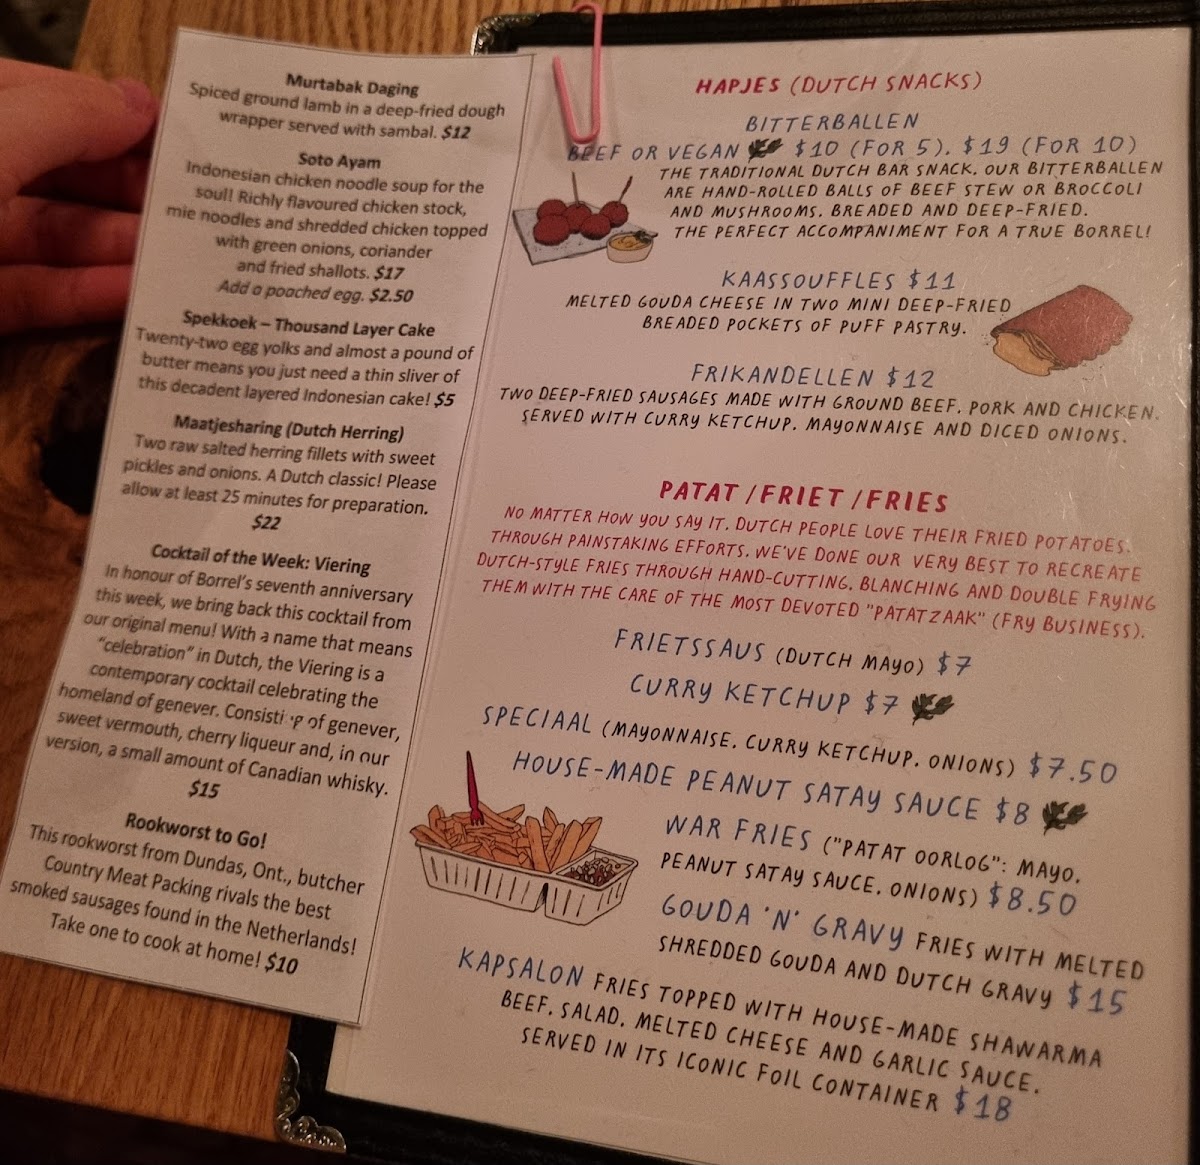 Murtabak Daging
Spiced ground lamb in a deep-fried dough
wrapper served with sambal. $12
Soto Ayam
Indonesian chicken noodle soup for the
soul! Richly flavoured chicken stock,
mie noodles and shredded chicken topped
with green onions, coriander
and fried shallots. $17
Add a poached egg. $2.50
Spekkoek – Thousand Layer Cake
Twenty-two egg yolks and almost a pound of
butter means you just need a thin sliver of
this decadent layered Indonesian cake! $5
Maatjesharing (Dutch Herring)
Two raw salted herring fillets with sweet
pickles and onions. A Dutch classic! Please
allow at least 25 minutes for preparation.
$22
Cocktail of the Week: Viering
In honour of Borrel's seventh anniversary
this week, we bring back this cocktail from
our original menu! With a name that means
"celebration" in Dutch, the Viering is a
contemporary cocktail celebrating the
homeland of genever. Consisting of genever,
sweet vermouth, cherry liqueur and, in our
version, a small amount of Canadian whisky.
$15
Rookworst to Go!
This rookworst from Dundas, Ont., butcher
Country Meat Packing rivals the best
smoked sausages found in the Netherlands!
Take one to cook at home! $10
HAPJES (DUTCH SNACKS)
BITTERBALLEN
BEEF OR VEGAN $10 (FOR 5). $19 (FOR 10)
THE TRADITIONAL DUTCH BAR SNACK. OUR BITTERBALLEN
ARE HAND-ROLLED BALLS OF BEEF STEW OR BROCCOLI
AND MUSHROOMS. BREADED AND DEEP-FRIED.
THE PERFECT ACCOMPANIMENT FOR A TRUE BORREL!
KAASSOUFFLES $11
MELTED GOUDA CHEESE IN TWO MINI DEEP-FRIED
BREADED POCKETS OF PUFF PASTRY.
FRIKANDELLEN $12
TWO DEEP-FRIED SAUSAGES MADE WITH GROUND BEEF. PORK AND CHICKEN.
SERVED WITH CURRY KETCHUP. MAYONNAISE AND DICED ONIONS.
PATAT /FRIET /FRIES
NO MATTER HOW YOU SAY IT. DUTCH PEOPLE LOVE THEIR FRIED POTATOES.
THROUGH PAINSTAKING EFFORTS. WE'VE DONE OUR VERY BEST TO RECREATE
DUTCH-STYLE FRIES THROUGH HAND-CUTTING. BLANCHING AND DOUBLE FRYING
THEM WITH THE CARE OF THE MOST DEVOTED "PATATZAAK" (FRY BUSINESS).
FRIETSSAUS (DUTCH MAYO) $7
CURRY KETCHUP $7
SPECIAAL (MAYONNAISE. CURRY KETCHUP. ONIONS) $7.50
HOUSE-MADE PEANUT SATAY SAUCE $8
WAR FRIES ("PATAT OORLOG": MAYO.
PEANUT SATAY SAUCE. ONIONS) $8.50
GOUDA 'N' GRAVY FRIES WITH MELTED
SHREDDED GOUDA AND DUTCH GRAVY $15
KAPSALON FRIES TOPPED WITH HOUSE-MADE SHAWARMA
BEEF. SALAD. MELTED CHEESE AND GARLIC SAUCE.
SERVED IN ITS ICONIC FOIL CONTAINER $18